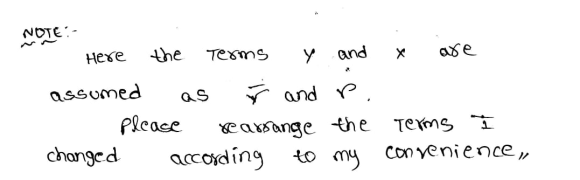 NOTE:-
Here the Terms y and x are
assumed as r̄ and r.
Please rearrange the Terms I
changed according to my convenience,,